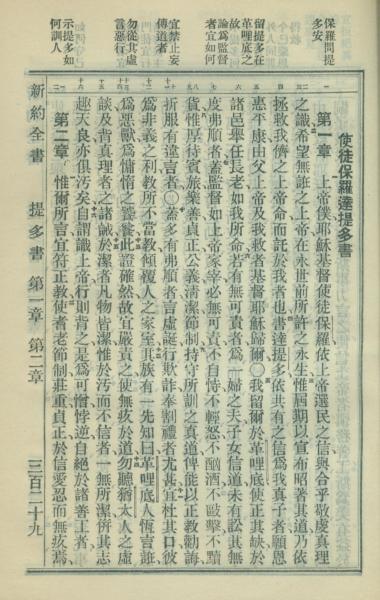 保羅問提
多安
留提多在
革哩底之
故
論爲監督
者宜如何
宜禁止妄
傳道者
勿從其虛
言惡行
示提多如
何訓人
使徒保羅達提多書
第一章 上帝僕耶穌基督使徒保羅依上帝選民之信與合乎敬虔真理
之識希望無誑之上帝在永世前所許之永生惟屆期以宣布昭著其道乃依
拯救我儕之上帝命而託於我者也書達提多依共有之信爲我真子者願恩
惠平康由父上帝及我救者基督耶穌歸爾○我留爾於革哩底使正其缺於
諸邑舉任長老如我所命若有無可責者爲一婦之夫子女信道未有訟其無
度弗順者蓋監督如上帝家宰必無可責不自恃不輕怒不酗酒不毆擊不黷
貨惟厚待賓旅樂善貞正公義淸潔節制持守所訓之真道俾能以正教勸誨
折服有違言者○蓋多有弗順者言虛誕行欺詐奉割禮者尤甚宜杜其口彼
爲非義之利教所不當教傾覆人之家室其族有一先知曰革哩底人恆言誑
爲惡獸爲慵惰之饕餮此證確然故宜嚴責之使無疚於道勿聽猶太人之虛
談及背真理者之誡於潔者凡物皆潔惟於污而不信者一無所潔併其志
趣天良亦俱污矣自謂識上帝行則背之是爲可憎悖逆自絕於諸善工者
第二章 惟爾所言宜符正教使耆老節制莊重貞正於信愛忍而無疚焉
新約全書 提多書 第一章 第二章 三百二十九